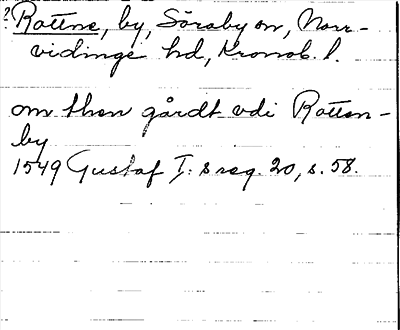 ? Rottne, by, Söraby sn, Norr-
vidinge hd, Kronob. l.
om then gårdt vdi Rotten-
by
1549 Gustaf I:s reg. 20, s. 58.